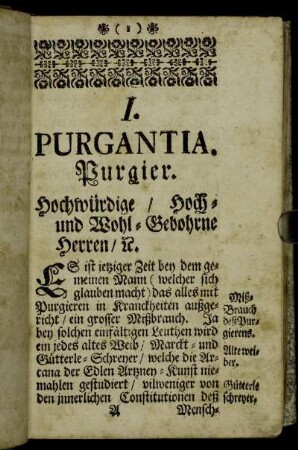 ( 1 )
I.
PURGANTIA.
Purgier.
Hochwürdige / Hoch-
und Wohl-Gebohrne
Herren / ꝛc.
ES ist jetziger Zeit bey dem ge-
meinen Mann (welcher sich
glauben macht) das alles mit
Purgieren in Kranckheiten außge-
richt / ein grosser Mißbrauch. Ja
bey solchen einfältigen Leuthen wird
ein jedes altes Weib / Marckt- und
Gütterle-Schreyer / welche die Ar-
cana der Edlen Artzney-Kunst nie-
mahlen gestudiert / vilweniger von
den innerlichen Constitutionen deß
A Mensch-
Miß-
Brauch
deß Pur-
gierens.
Alte wei-
ber.
Gütterle
schreyer.